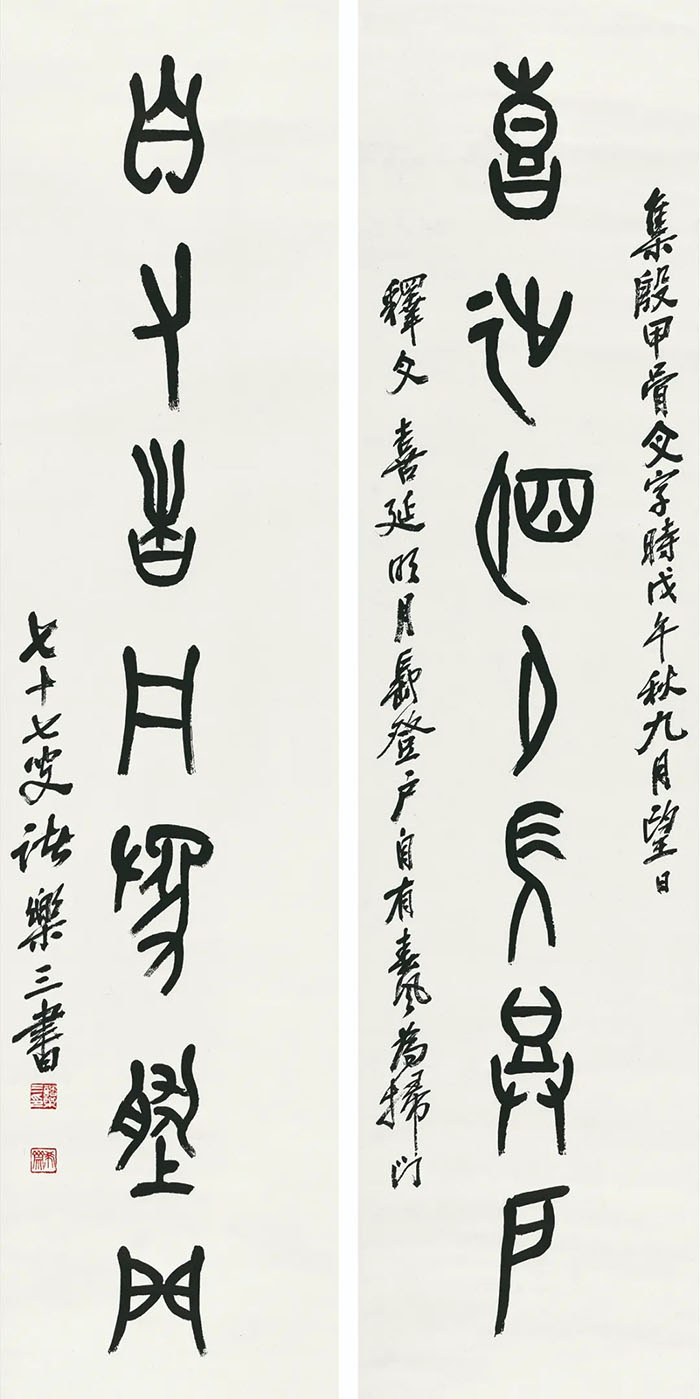 集殷甲骨文字時戊午秋九月望日
喜延明月長登戶
釋文 喜延明月長登戶自有春風為掃門
自有春風為掃門
七十七叟諸樂三書